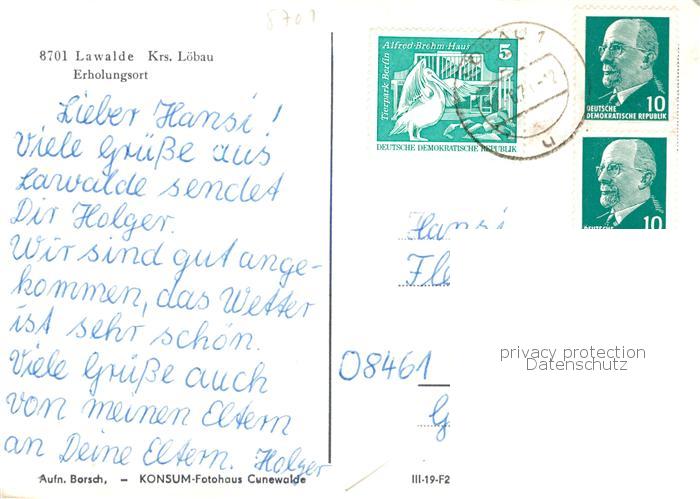 8701
8701 Lawalde Krs. Löbau
Erholungsort
Lieber Hansi!
Viele Grüße aus
Lawalde sendet
Dir Holger.
Wir sind gut ange-
kommen, das Wetter
ist sehr schön.
Viele Grüße auch
von meinen Eltern
an Deine Eltern. Holger
Aufn. Borsch, – KONSUM-Fotohaus Cunewalde
III-19-F2
Alfred-Brehm-Haus
5
Tierpark Berlin
DEUTSCHE DEMOKRATISCHE REPUBLIK
10
DEUTSCHE
DEMOKRATISCHE REPUBLIK
10
Hansi
08461
G
privacy protection
Datenschutz